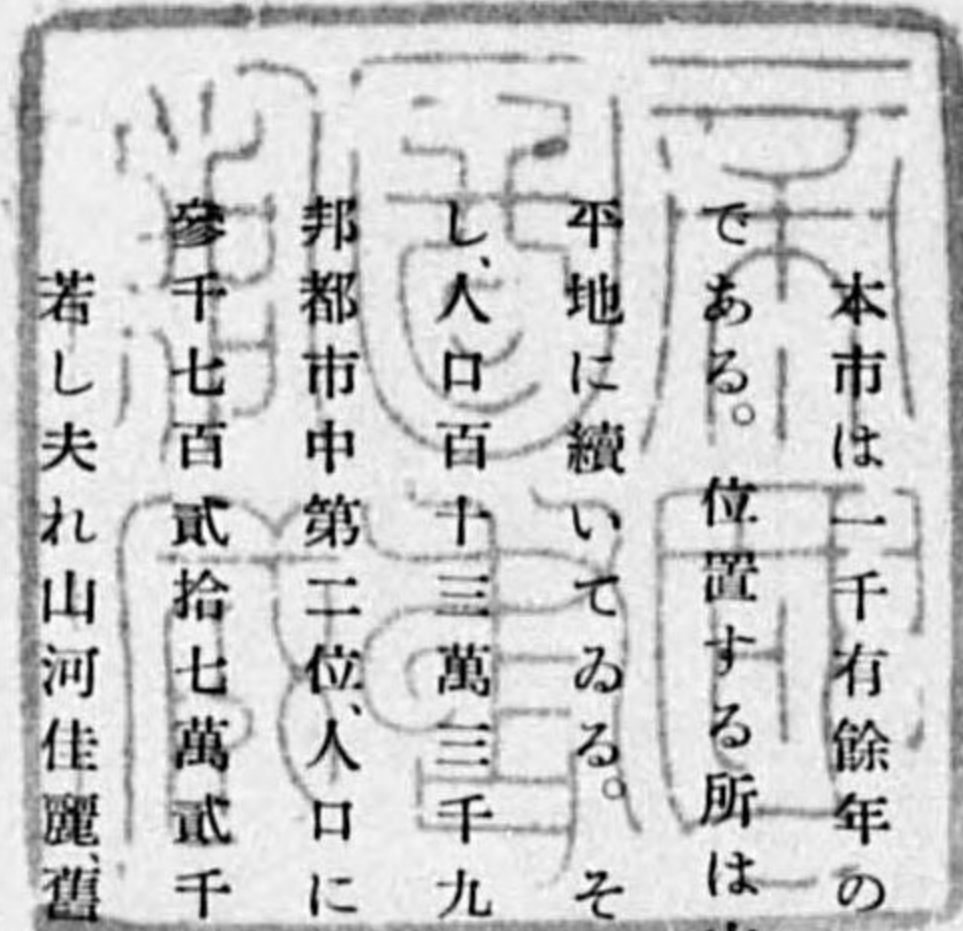 本市は一千有餘年の
である。位置する所は
平地に續いてゐる。そ
し、人口百十三萬三千九
邦都市中第二位、人口に
參千七百貳拾七萬貳千
若し夫れ山河佳麗、舊